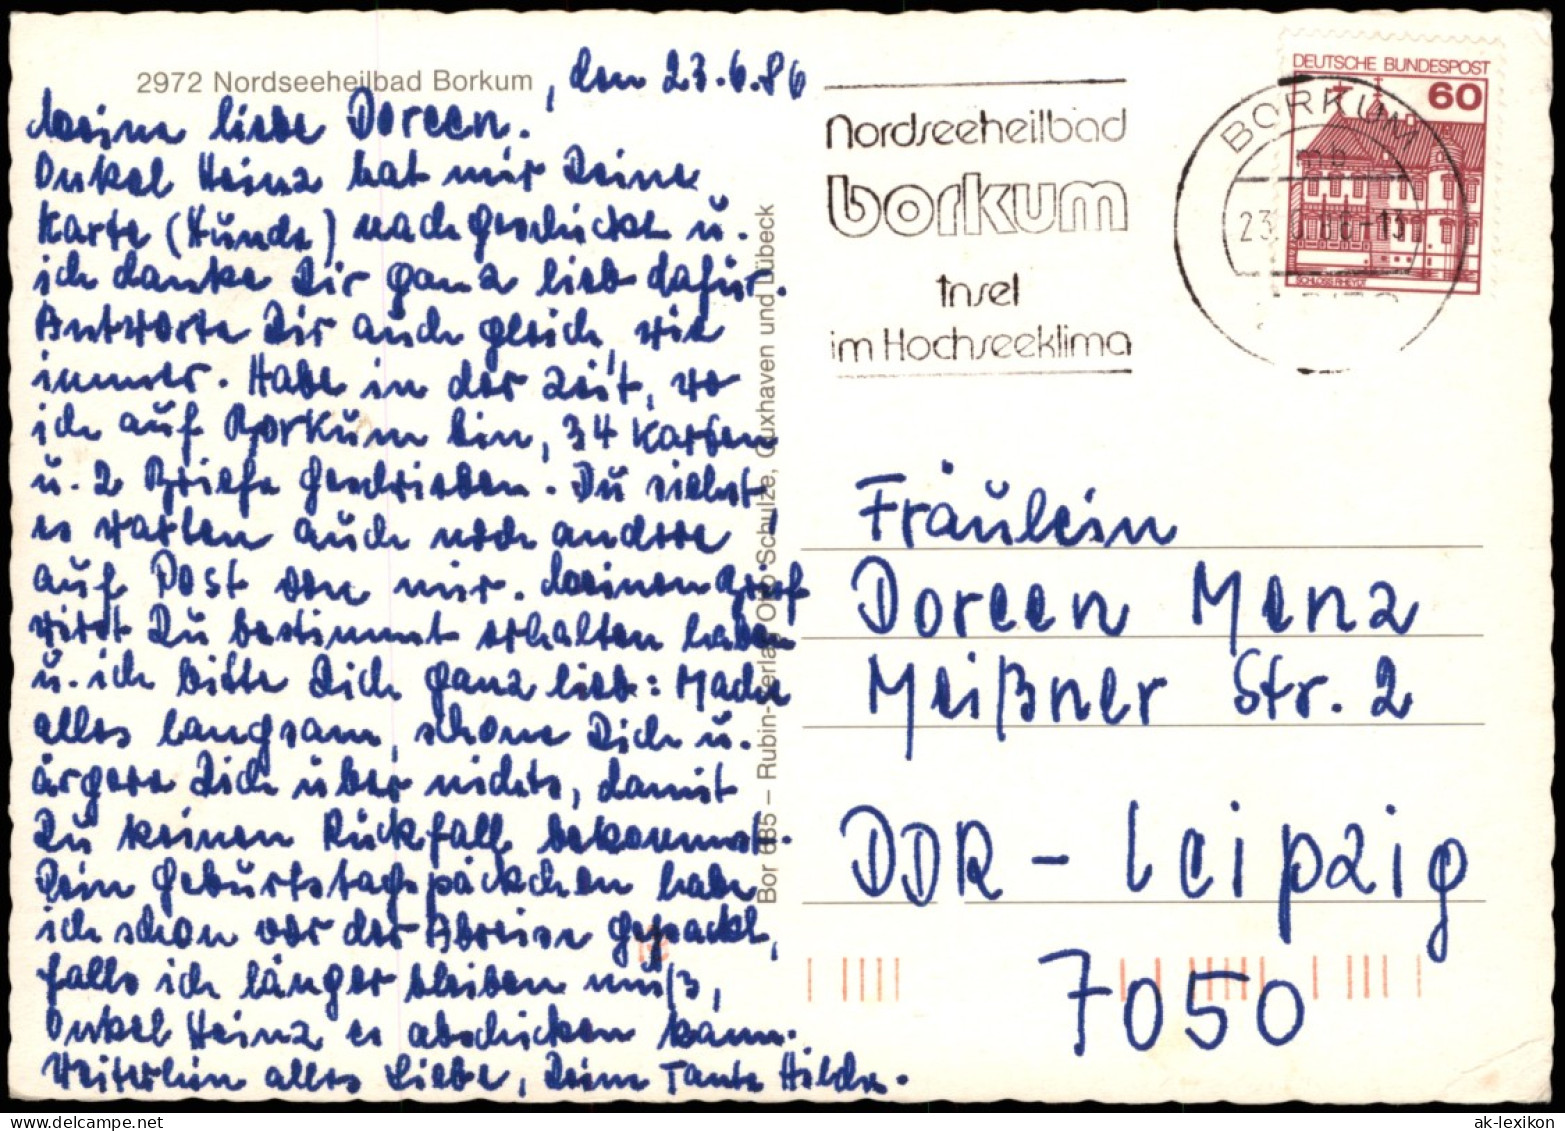 2972 Nordseeheilbad Borkum, den 23.6.86
Meine liebe Doreen.
Onkel Heinz hat mir Deine
Karte (Hunde) nachgeschickt u.
ich danke Dir ganz lieb dafür.
Antworte Dir auch gleich, wie
immer. Habe in der Zeit, wo
ich auf Borkum bin, 34 Karten
u. 2 Briefe geschrieben. Du siehst
es warten auch noch andere
auf Post von mir. Meinen Brief
wirst Du bestimmt erhalten haben
u. ich bitte Dich ganz lieb: Mache
alles langsam, schone Dich u.
ärgere Dich über nichts, damit
Du keinen Rückfall bekommst.
Dein Geburtstagspäckchen habe
ich schon vor der Abreise gepackt,
falls ich länger bleiben muß,
Onkel Heinz es abschicken kann.
Weiterhin alles Liebe, Deine Tante Hilde.
Bor 685 – Rubin-Verlag Otto Schulze, Cuxhaven und Lübeck
Nordseeheilbad
borkum
Insel
im Hochseeklima
BORKUM
mb
23.6.86-13
DEUTSCHE BUNDESPOST
60
SCHLOSS RHEYDT
Fräulein
Doreen Menz
Meißner Str. 2
DDR - Leipzig
7050
ak-lexikon